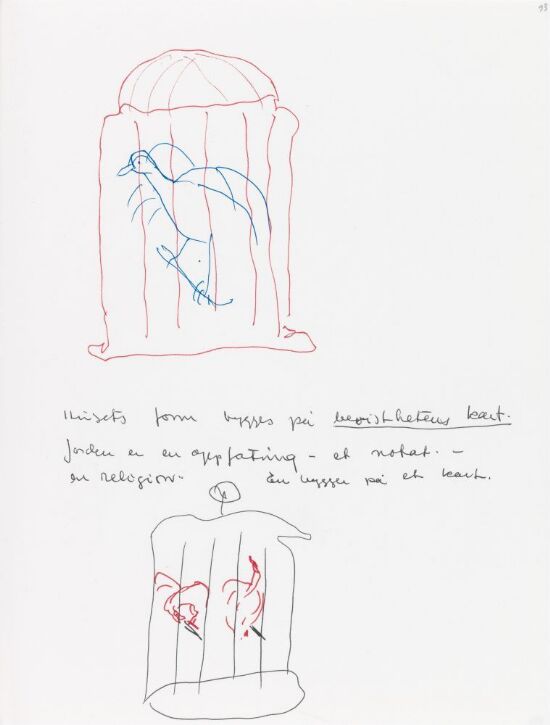 93
Husets form bygges på bevisthetens kart.
Jorden er en oppfatning - et notat. -
en religion. En bygger på et kart.